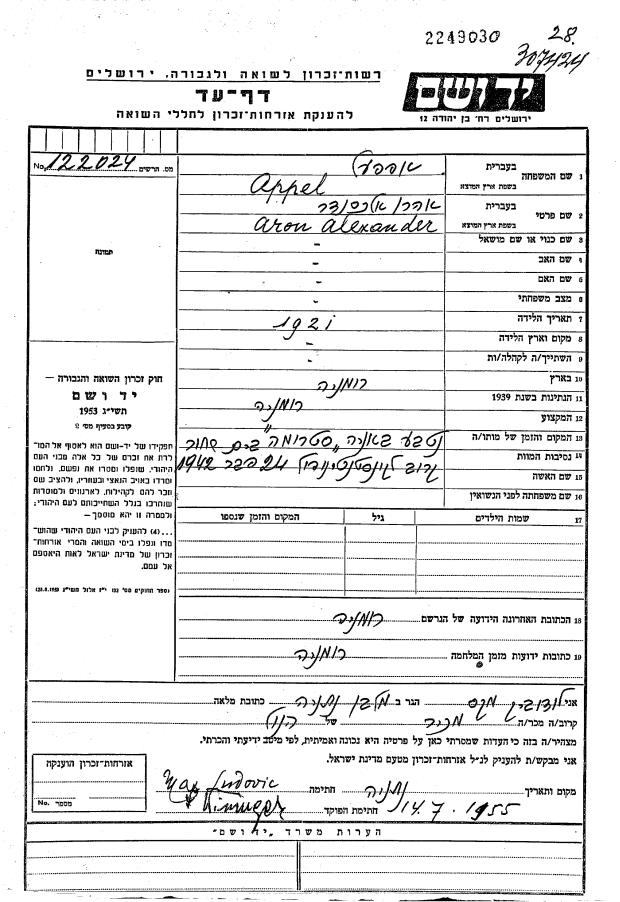 2249030
28.
307424
רשות-זכרון לשואה ולגבורה, ירושלים
דף-עד
להענקת אזרחות-זכרון לחללי השואה
יד ושם
ירושלים רח' בן יהודה 12
מס. הרשים No. 122024
תמונה
חוק זכרון השואה והגבורה —
יד ושם
תשי"ג 1953
קובע בסעיף מס' 2
תפקידו של יד-ושם הוא לאסוף אל המו-
לדת את זכרם של כל אלה מבני העם
היהודי, שנפלו ומסרו את נפשם, נלחמו
ומרדו באויב הנאצי ובעוזריו, ולהציב שם
וזכר להם לקהילות, לארגונים ולמוסדות
שנחרבו בגלל השתייכותם לעם היהודי;
ולמטרה זו יהא מוסמך —
...(4) להעניק לבני העם היהודי שהוש-
מדו ונפלו בימי השואה והמרי אזרחות-
זכרון של מדינת ישראל לאות היאספם
אל עמם.
(ספר החוקים מס' 132 י"ז אלול תשי"ג 28.8.1953)
1 שם המשפחה בעברית אפפעל
בשפת ארץ המוצא Appel
2 שם פרטי בעברית אהרן אלכסנדר
בשפת ארץ המוצא Aron Alexander
3 שם כנוי או שם מושאל -
4 שם האב -
5 שם האם -
6 מצב משפחתי -
7 תאריך הלידה 1921
8 מקום וארץ הלידה -
9 השתייך/ה לקהלה/ות -
10 בארץ רומניה
11 הנתינות בשנת 1939 רומניה
12 המקצוע
13 המקום והזמן של מותו/ה נטבע באניה "סטרומה" בים שחור
14 נסיבות המוות קרוב לקונסטנטינופול 24 פבר 1942
15 שם האשה
16 שם משפחתה לפני הנשואין
17 שמות הילדים גיל המקום והזמן שנספו
18 הכתובת האחרונה הידועה של הנרשם רומניה
19 כתובות ידועות מזמן המלחמה רומניה
אני לודוביק מקס הגר ב נתניה כתובת מלאה
קרוב/ה מכר/ה מכיר של הנ"ל
מצהיר/ה בזה כי העדות שמסרתי כאן על פרטיה היא נכונה ואמיתית, לפי מיטב ידיעתי והכרתי.
אני מבקש/ת להעניק לנ"ל אזרחות-זכרון מטעם מדינת ישראל.
מקום ותאריך נתניה חתימה Max Ludovic
14.7.1955 חתימת הפוקד
אזרחות-זכרון הוענקה
מספר No.
הערות משרד "יד ושם"